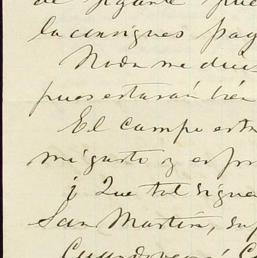 de pagaré pue
la consignes pag
Nada me dices
pues estarán bien
El campo esta
mi gusto y es pr
¿ Que tal sigue
San Martin, su